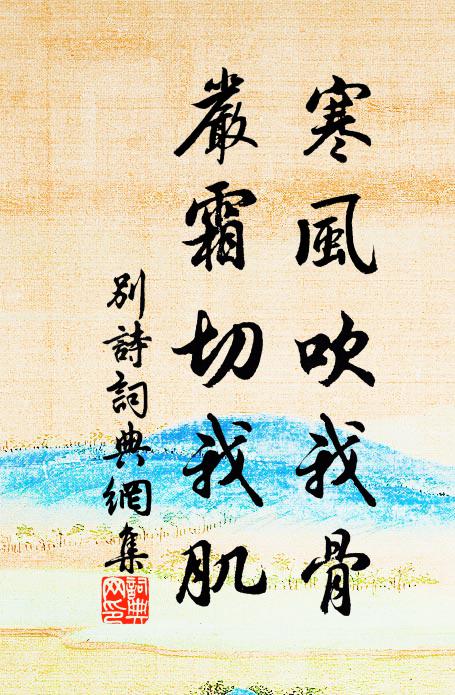 寒風吹我骨
嚴霜切我肌
別詩詞典網集
詞典